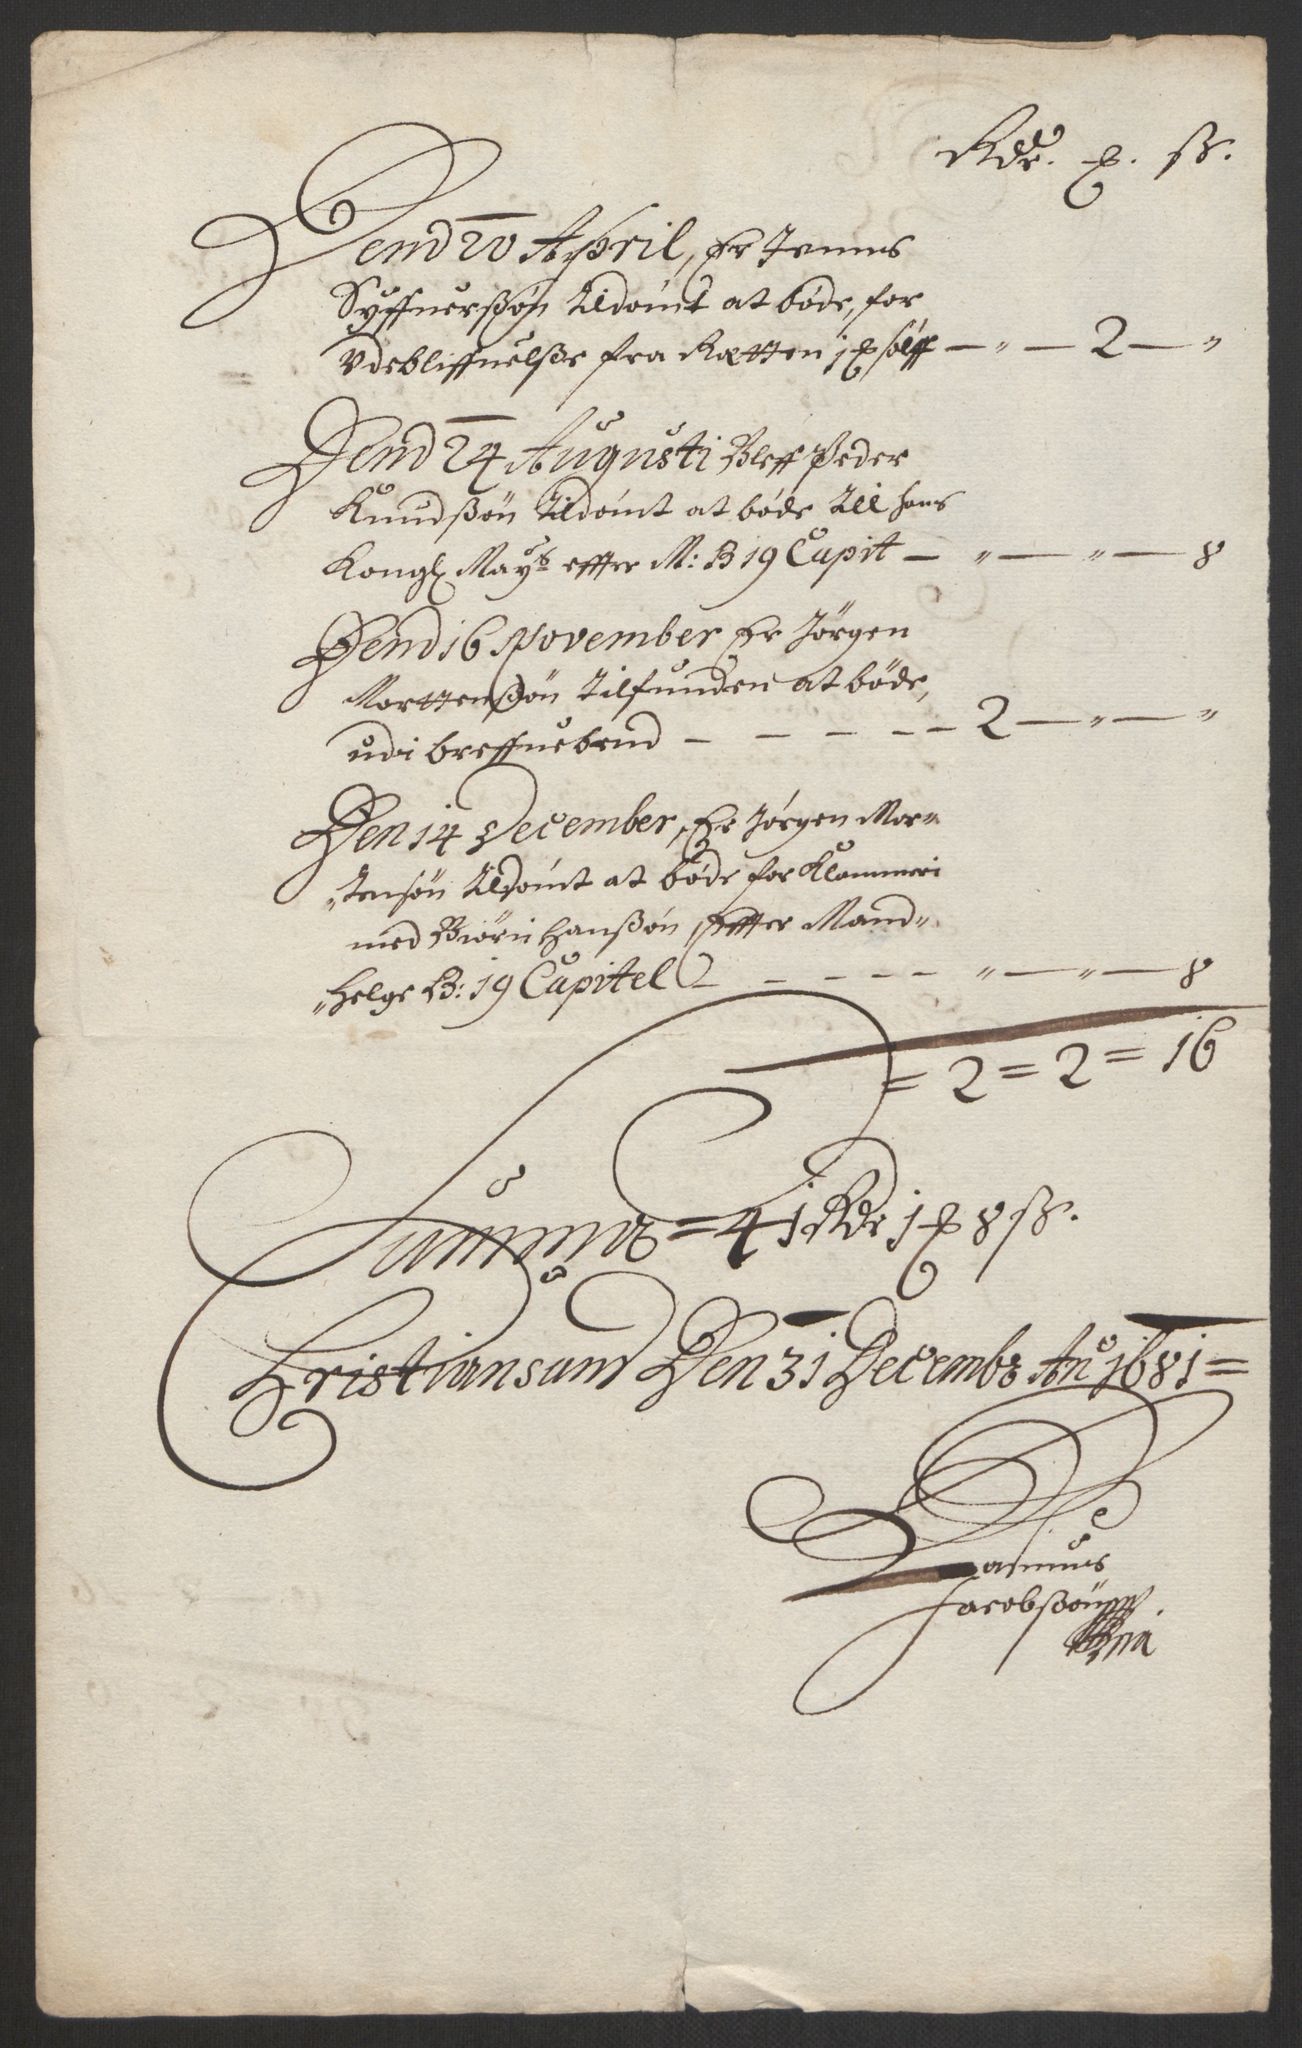 Rdr. ℔. ss.
Dend 20 April, Er Jennes
Syffuerßøn tildømt at bøde, for
Vdebliffuelße fra Rætten 1 ℔ sølff — " — 2 — "
Dend 24 Augusti Bleff Peder
Knudßøn tildømt at bøde till hans
Kongl Mayts effter M: B 19 Capit — " — " — 8
Dend 16 November Er Jörgen
Morttenßøn tilfunden at bøde,
udi breffuebrud — — — — — 2 — " — "
Den 14 December, Er Jørgen Mor=
=tensøn tildømt at bøde for Klammeri
med Biørn Hanßøn, Effter Mand=
=helge B: 19 Capitel — — — — " — " — 8
= 2 = 2 = 16
Summa = 41 Rdr 1 ℔ 8 ss.
Christiansand Den 31 Decembr Ano 1681 =
Rasmus
Jacobßøn